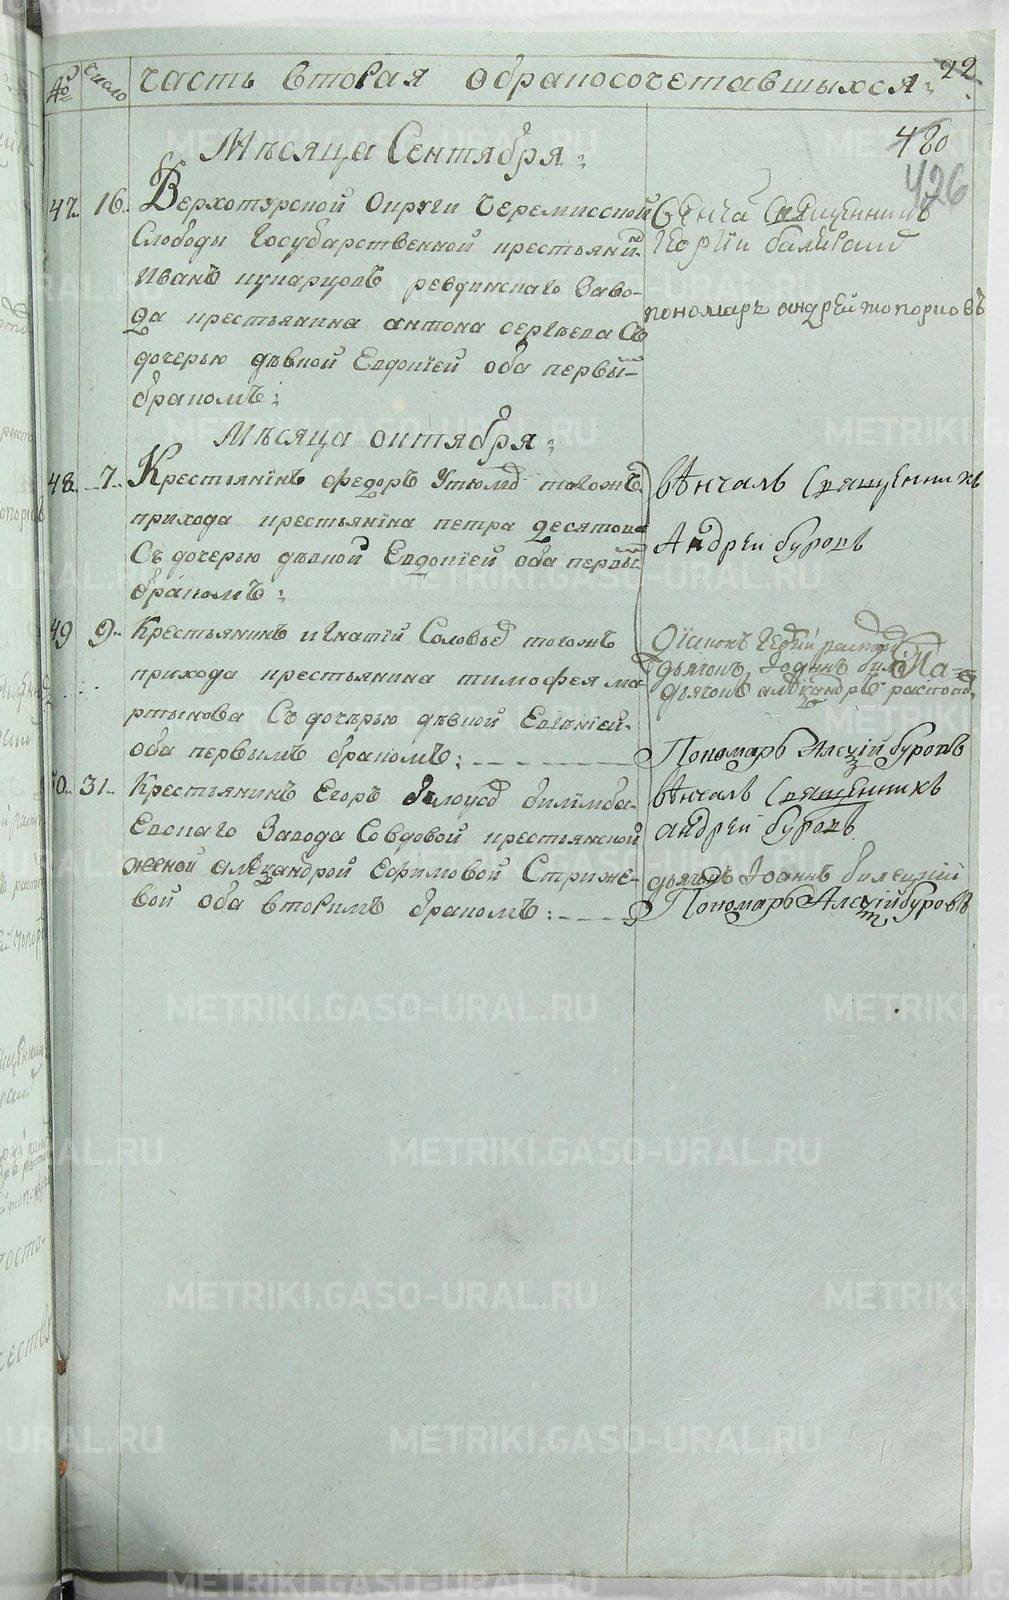 № число часть вторая обракосочетавшыхся: 42
480
426
Мѣсяца Сентября:
47. 16. Верхотурской Округи Черемисской
Слободы Государственной крестьянин
Иванъ Ревдинскаго Заво-
да крестьянина антона сергѣева Съ
дочерью дѣвкой Евдокіей оба первы-
бракомъ:
Вѣнча Священникъ
пономарь андрей топорковъ
Мѣсяца октября:
48. 7. Крестьянінъ Федоръ тогожъ
прихода крестьяніна петра десятова
Съ дочерью дѣвкой Евдокіей оба первы
бракомъ:
Вѣнчалъ Священникъ
Андрей буровъ
49 9. Крестьянинъ игнатій Соловьев тогожъ
прихода крестьянина тимофея ма
ртынова Съ дочерью дѣвкой Евгеніей
оба первымъ бракомъ:
дьячокъ Іоаннъ
дьячокъ александръ
Пономарь Алексій буровъ
50. 31. Крестьянинъ Егоръ белоусов билимба-
евскаго Завода Совдовой крестьянской
женкой александрой Ефимовой Стриже-
вой оба вторымъ бракомъ:
вѣнчалъ Священникъ
андрей буровъ
дьячокъ Іоаннъ билецкий
Пономарь Алексій буровъ
METRIKI.GASO-URAL.RU